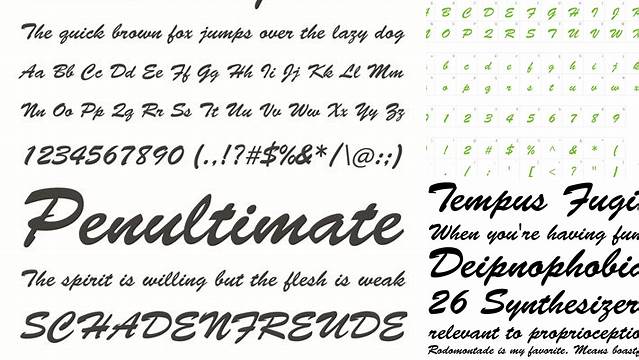 The quick brown fox jumps over the lazy dog
Aa Bb Cc Dd Ee Ff Gg Hh Ii Jj Kk Ll Mm
Nn Oo Pp Qq Rr Ss Tt Uu Vv Ww Xx Yy Zz
1234567890 (.,!?#$%&*/\@:;)
Penultimate
The spirit is willing but the flesh is weak
SCHADENFREUDE
B C D E F G H I J K
O P Q R S T U V W X
b c d e f g h i j k
o p q r s t u v w x
1 2 3 4 5 6 7 8 9
! 2 # $ % ^ & * (
. / ; ' [ < ? " |
Tempus Fugi
When you're having fun
Deipnophobia
26 Synthesizer
relevant to proprioception
Rodomontade is my favorite. Means boasty